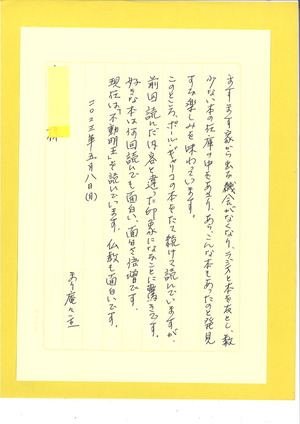 ますます家から出る機会がなくなり、ラジオと本を友とし、数
少ない本の在庫の中をあさり、あら、こんな本もあったのと発見
する楽しみを味わっています。
このところ、ポール・ギャリコの本をたて続けて読んでいますが、
前回読んだ内容と違った印象になることに驚きです。
好きな本は何回読んでも面白い、面白さ倍増です。
現在は「不動明王」を読んでいます。仏教も面白いです。
二〇二三年五月八日(月)